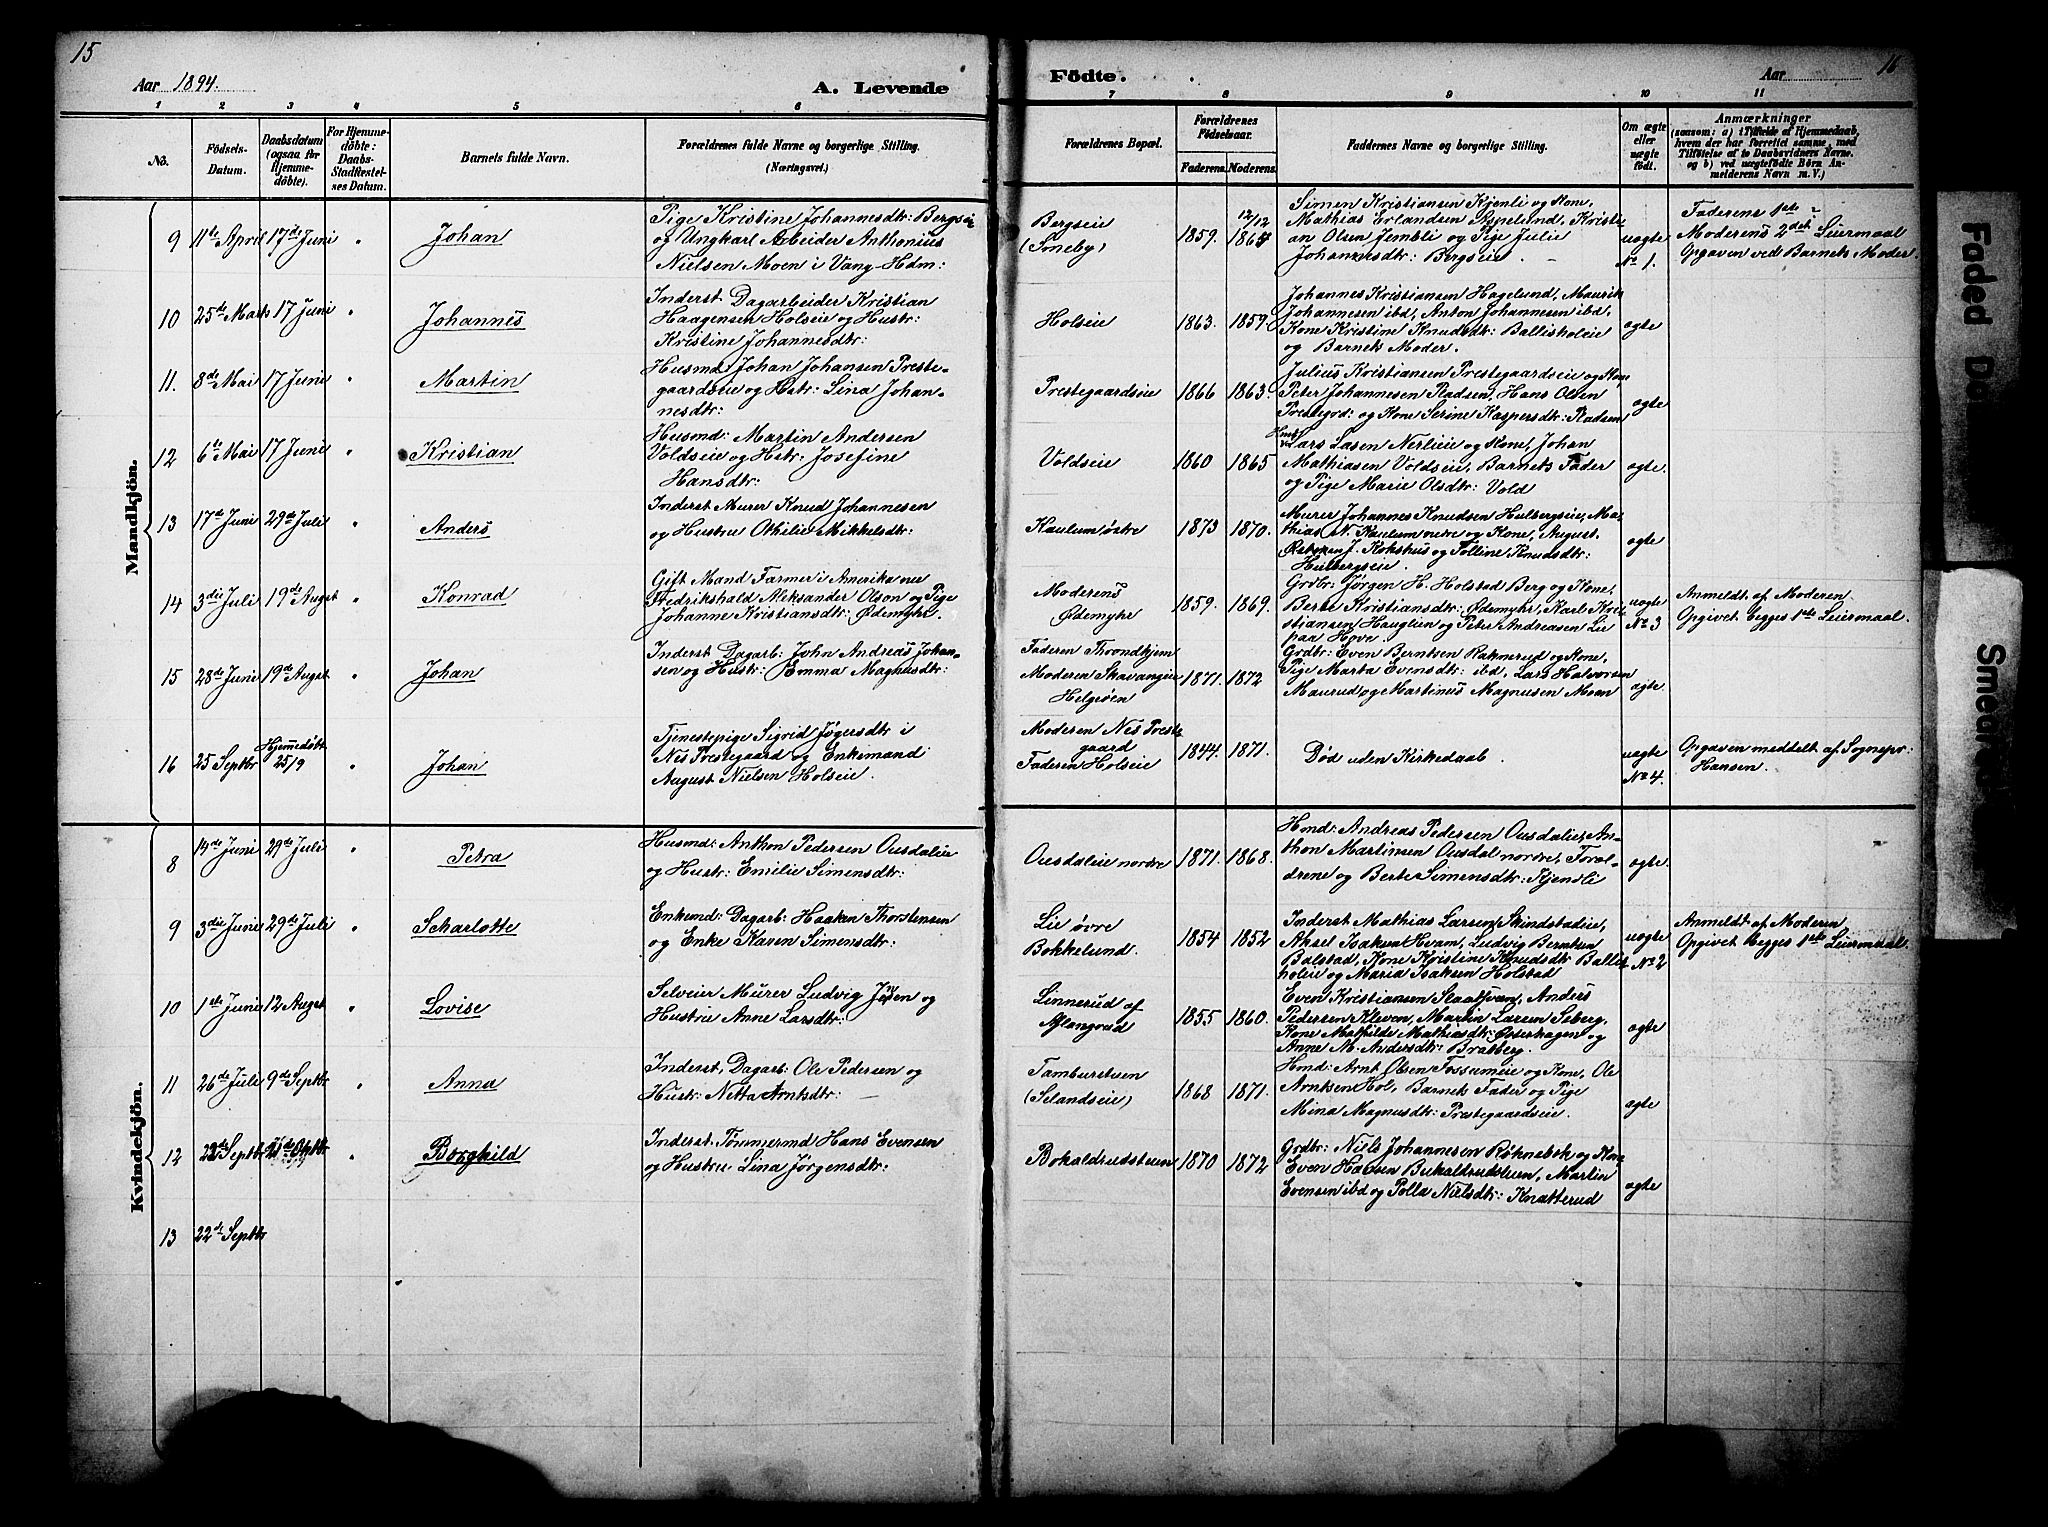 15
16
Aar 1894.
A. Levende
Födte.
Aar
1 2 3 4 5 6 7 8 9 10 11
No.
Födsels-
Datum.
Daabsdatum
(ogsaa for
Hjemme-
döbte).
For Hjemme-
döbte:
Daabs-
Stadfestel-
ses Datum.
Barnets fulde Navn.
Forældrenes fulde Navne og borgerlige Stilling.
(Næringsvei.)
Forældrenes Bopæl.
Forældrenes
Födselsaar.
Faderens. Moderens.
Faddernes Navne og borgerlige Stilling.
Om ægte
eller
uægte
født.
Anmærkninger
(saasom: a) i Tilfælde af Hjemmedaab,
hvem der har forrettet samme, med
Tilföielse af to Daabsvidners Navne.
og b) ved uægtefödte Börn An-
melderens Navn m. V.)
Mandkjön.
9 11te April 17de Juni " Johan
Pige Kristine Johannesdtr: Bergseie
og Ungkarl Arbeider Anthonius
Nielsen Moen i Vang Hdm:
Bergseie
(Smeby)
1859. 12/12 1865
Simen Kristiansen Kjenli og Kone,
Mathias Erlandsen Aspelund, Kristi-
an Olsen Jembli og Pige Julie
Johannesdtr: Bergseie.
uægte
No 1.
Faderens 1ste
Moderens 2det Leiermaal
Opgaven ved Barnets Moder
10 25de Marts 17 Juni " Johannes
Inderst Dagarbeider Kristian
Haagensen Holseie og Hustr:
Kristine Johannesdtr:
Holseie
1863. 1859.
Johannes Kristiansen Hagelund, Maurik
Johannesen ibd, Anton Johannesen ibd,
Kone Kristine Knudsdtr: Ballisholeie
og Barnets Moder.
ægte
11. 8de Mai 17 Juni " Martin
Husmd: Johan Johansen Preste-
gaardseie og Hstr: Lina Johan-
nesdtr:
Prestegaardseie
1866 1863.
Julius Kristiansen Prestegaardseie og Kone
Peter Johannesen Stadsen, Hans Olsen
Prestegrd: og Kone Serine Kaspersdtr: Stadsen
ægte
12 6te Mai 17 Juni " Kristian
Husmd: Martin Andersen
Voldseie og Hstr: Josefine
Hansdtr:
Voldseie
1860 1865
Lars Lasen Nerlieie og Kone, Johan
Mathiasen Voldseie, Barnets Fader
og Pige Marie Olsdtr: Vold
ægte.
13 17de Juni 29de Juli " Anders
Inderst Murer Knud Johannesen
og Hustru Othilie Mikkelsdtr:
Kaulum østre
1873 1870.
Murer Johannes Knudsen Hulbergseie, Ma-
thias N. Kaulum nedre og Kone, August
J. Kokshus og Tolline Knudsdtr:
Hulbergseie.
ægte
14 3die Juli 19de Augst " Konrad
Gift Mand Farmer i Amerika nu
Fredrikshald Aleksander Olson og Pige
Johanne Kristiansdtr: Ødemyhr.
Moderens
Ødemyhr
1859. 1869.
Grdbr: Jørgen H. Holstad Berg og Kone,
Berte Kristiansdtr: Ødemyhr, Karl Kri-
stiansen Hauglien og Peter Andreasen Lie
paa Hove.
uægte
No 3
Anmeldt af Moderen
Opgivet begges 1ste Leiermaal.
15 28de Juni 19de Augst Johan
Inderst Dagarb: John Andreas Johan-
sen og Hustr: Emma Magnusdtr:
Faderen Throndhjem
Moderen Skavangeie
Helgeøen
1871. 1872
Grdbr: Even Berntsen Raknerud og Kone,
Pige Marta Evensdtr: ibd, Lars Halvorsen
Maurud og Martinus Magnusen Moen
ægte.
16 25 Septbr Hjemmedøbt
25/9 " Johan
Tjenestepige Sigrid Jøgersdtr i
Nes Prestegaard og Enkemand
August Nielsen Holseie.
Moderen Nes Preste
gaard
Faderen Holseie
1844. 1871.
Død uden Kirkedaab.
uægte
No 4.
Opgaven meddelt af Sognepr:
Hansen.
Kvindekjön.
8 14de Juni 29de Juli " Petra
Husmd: Anthon Pedersen Ousdaleie
og Hustr: Emilie Simensdtr:
Ousdaleie nordre
1871. 1868.
Hmd: Andreas Pedersen Ousdalie, An-
thon Martinsen Ousdal nordre, Foræl-
drene og Berte Simensdtr: Kjendli
ægte.
9 3die Juni 29de Juli " Scharlotte
Enkemd: Dagarb: Haaken Thorstensen
og Enke Karen Simensdtr:
Lie øvre
Bokkelund.
1854 1852
Inderst Mathias Larsen Skindstadeie,
Aksel Isaksen Hvam, Ludvig Berntsen
Balstad, Kone Kristine Knudsdtr Ballis-
holeie og Maria Isaksen Holstad
uægte
No 2
Anmeldt af Moderen
Opgivet begges 1ste Leiermaal.
10 1ste Juni 12 Augst " Lovise
Selveier Murer Ludvig Jensen og
Hustru Anne Larsdtr:
Linnerud af
Aflangrud
1855 1860.
Even Kristiansen Slaatsveen, Anders
Pedersen Kleven, Martin Larsen Seberg,
Kone Mathilde Mathiasdtr: Østerhagen og
Anne M. Andersdtr: Bratberg.
ægte
11 26de Juli 9de Septbr " Anna
Inderst, Dagarb: Ole Pedersen og
Hustr: Netta Arntsdtr:
Tamburstuen
(Selandseie)
1868 1871.
Hmd: Arnt Olsen Fossumeie og Kone, Ole
Arntsen Hol, Barnets Fader og Pige
Mina Magnusdtr: Prestegaardseie.
ægte
12 22de Septbr 21de Oktbr " Borghild
Inderst. Tømmermd Hans Evensen
og Hustru Lina Jørgensdtr:
Bokaldrudstuen
1870 1872
Grdbr: Niels Johannesen Røhnebæk og Kone
Even Hansen Bukaldrudstuen, Martin
Evensen ibd og Polla Nielsdtr: Knatterud
ægte
13 22de Septbr
Faded
Smed